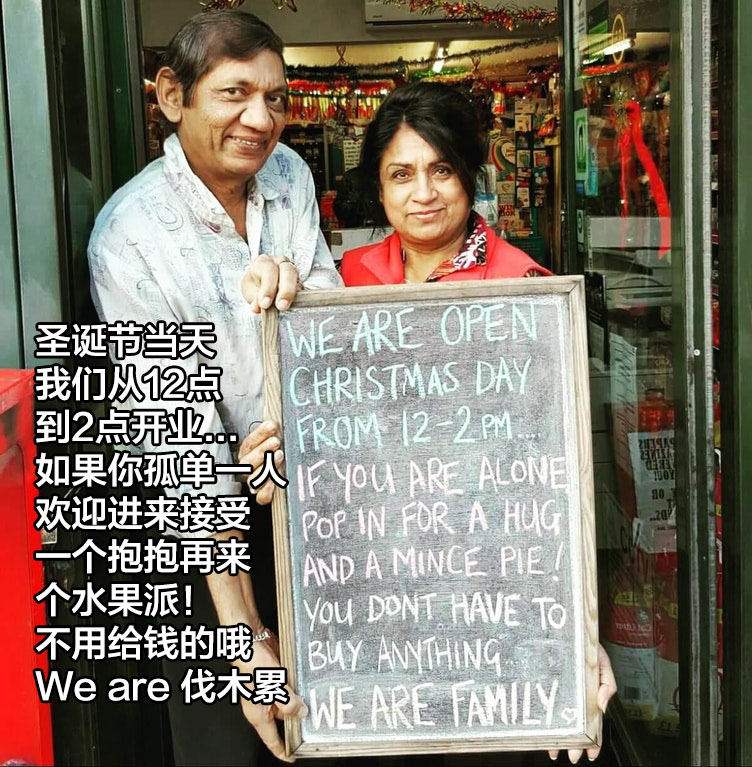 WE ARE OPEN
CHRISTMAS DAY
FROM 12-2PM....
IF YOU ARE ALONE
POP IN FOR A HUG
AND A MINCE PIE!
YOU DONT HAVE TO
BUY ANYTHING....
WE ARE FAMILY
圣诞节当天
我们从12点
到2点开业...
如果你孤单一人
欢迎进来接受
一个抱抱再来
个水果派！
不用给钱的哦
We are 伐木累